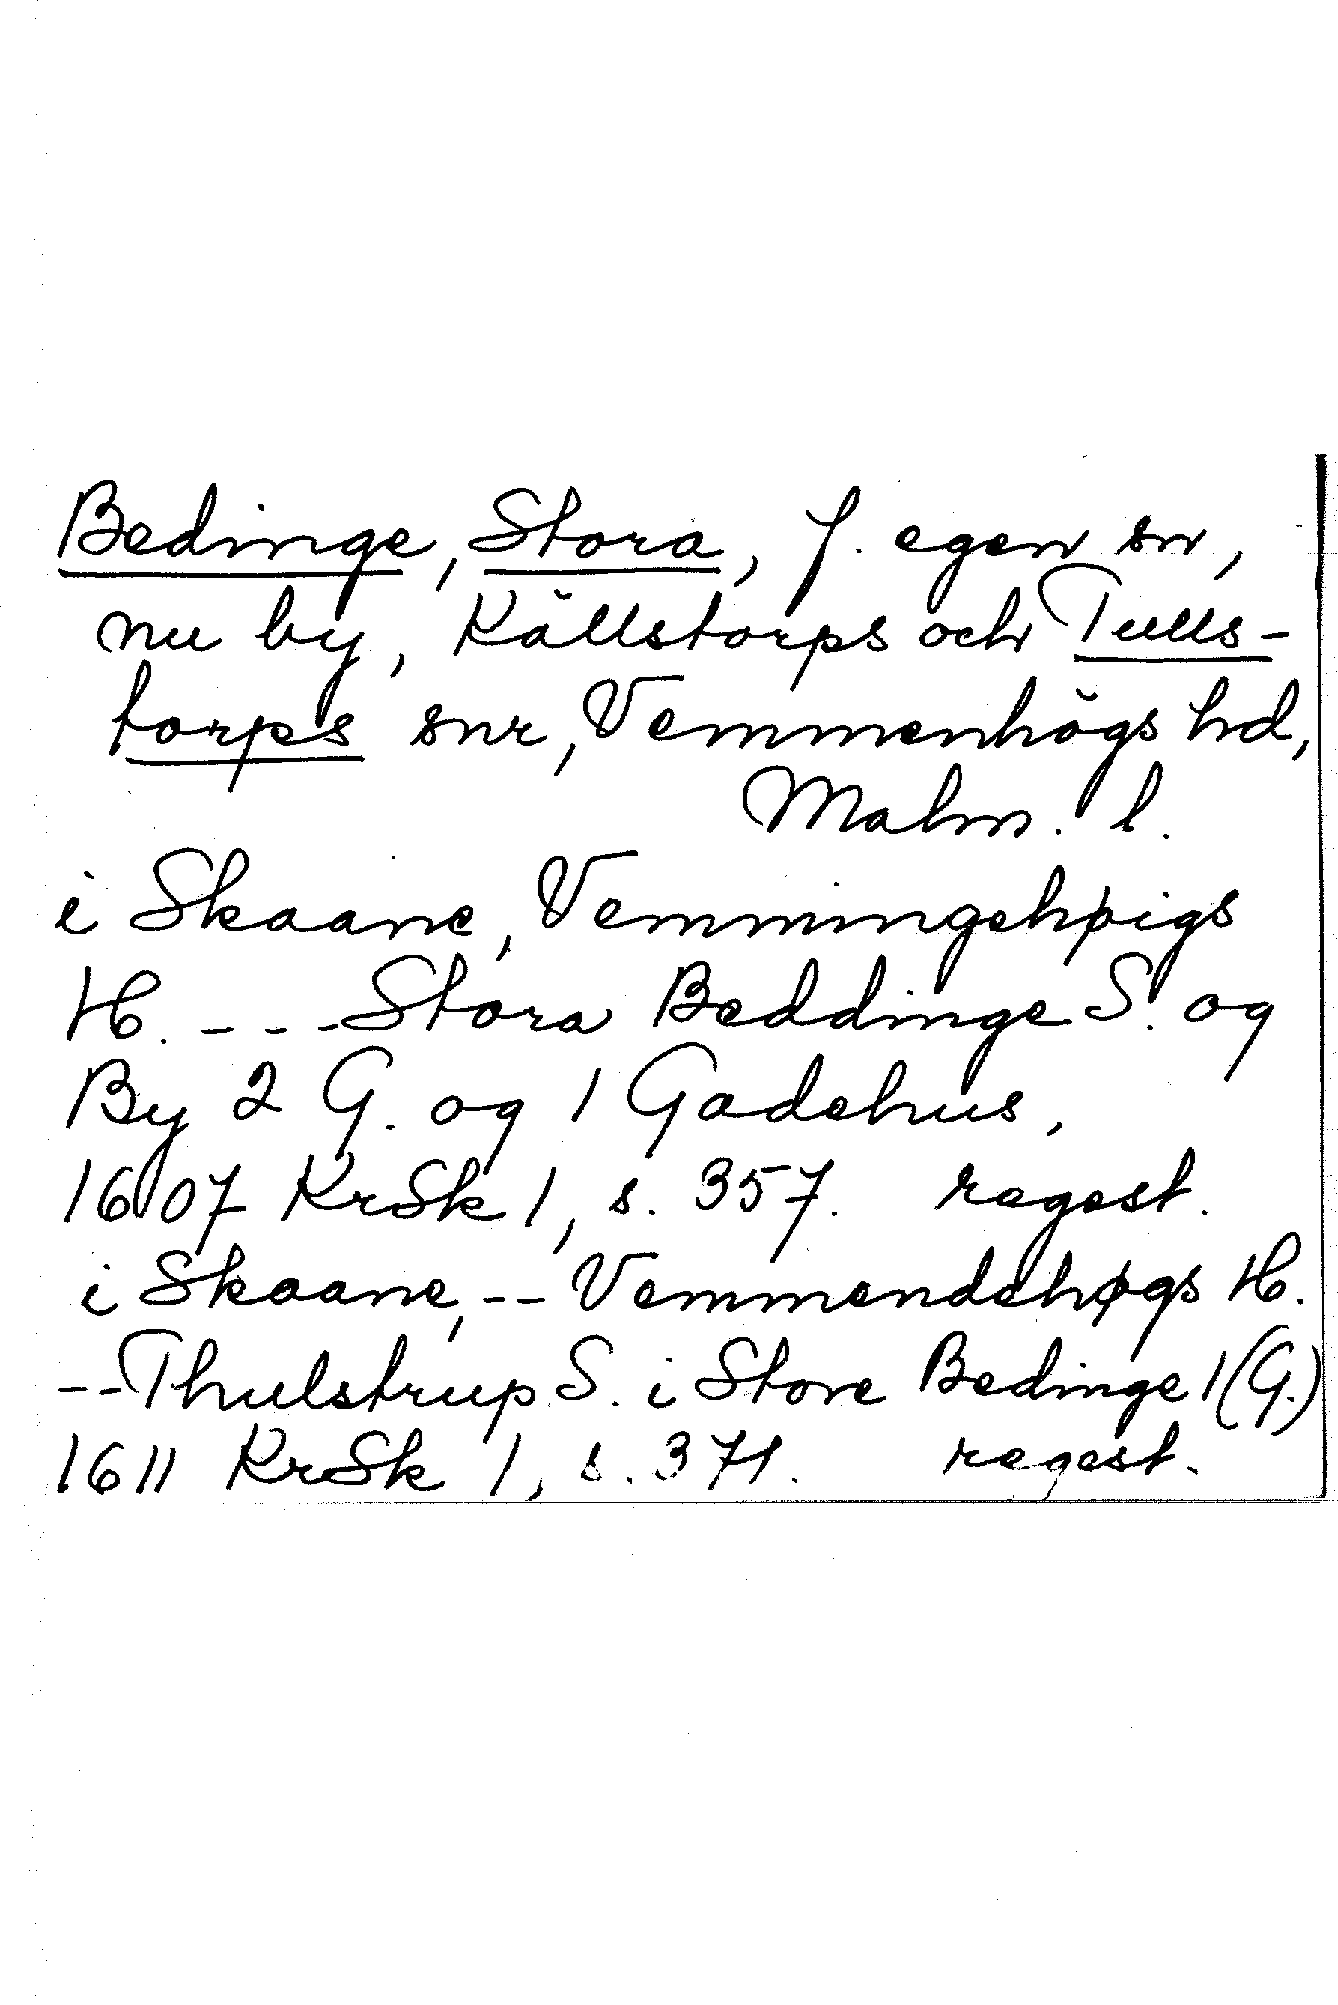 Bedinge, Stora, f. egen sn,
nu by, Källstorps och Tulls-
torps snr, Vemmenhögs hd,
Malm. l.
i Skaane, Vemmingehøigs
H. - - - Stora Beddinge S. og
By 2 G. og 1 Gadehus,
1607 KrSk 1, s. 357. regest.
i Skaane, -- Vemmendehøgs H.
-- Thulstrup S. i Store Bedinge 1 (G.)
1611 KrSk 1, s. 371. regest.